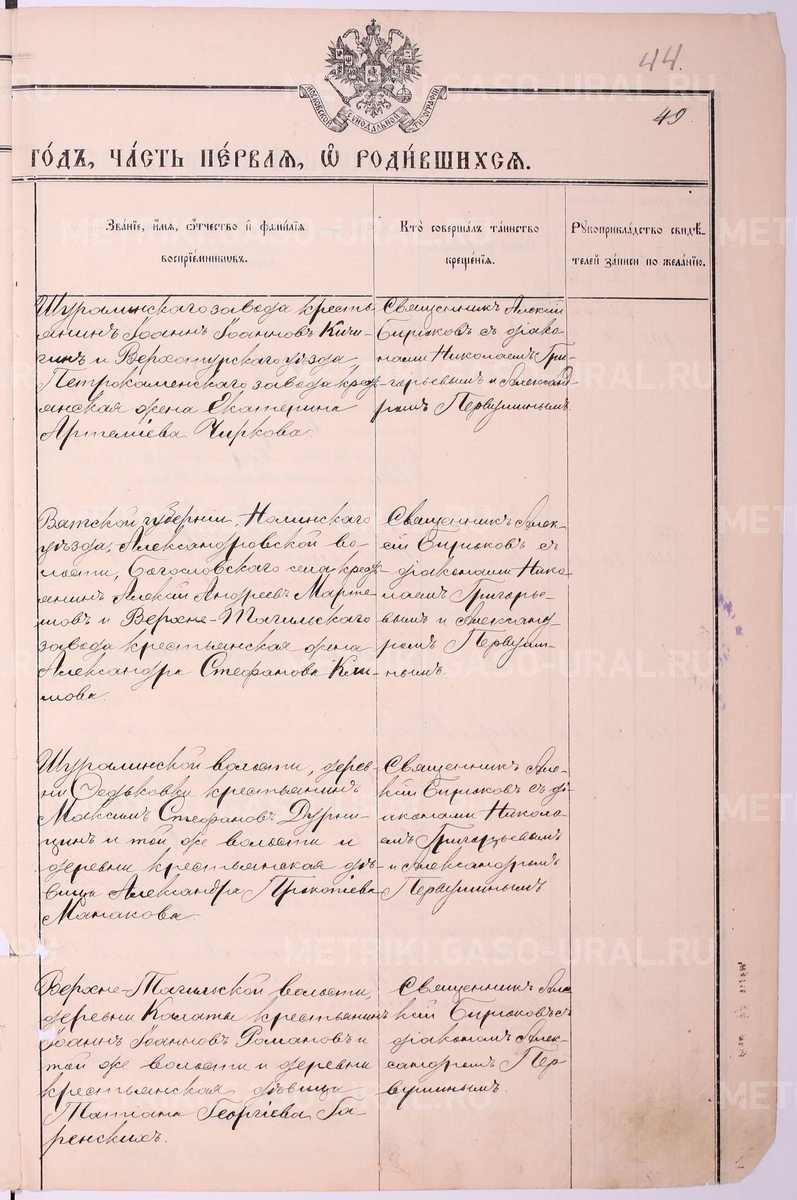 44.
МОСКОВСКОЙ СѴНОДАЛЬНОЙ ТИПОГРАФІИ
49.
ГО́ДЪ, ЧА́СТЬ ПЕ́РВАЯ, Ѽ РОДИ́ВШИХСЯ.
Зва́нїе, и҆́мя, ѻ҆́тчество и҆ фами́лїя
воспрїе́мникѡвъ.
Кто̀ соверша́лъ та́инство
креще́нїя.
Рꙋкоприкла́дство свидѣ́-
телей за́писи по жела́нїю.
Шуралинскаго завода кресть
янинъ Іоаннъ Іоанновъ Кичи-
гинъ и Верхотурскаго уѣзда
Петрокаменскаго завода крестъ-
янская жена Екатерина
Артеміева Чиркова.
Священникъ Алексій
Бирюковъ съ діако-
нами Николаемъ Гри-
горьевымъ и Александ-
ромъ Первушинымъ.
Вятской губерніи, Нолинскаго
уѣзда, Александровской во-
лости, Богословскаго села крестъ-
янинъ Алексій Андреевъ Марте-
мовъ и Верхне-Тагильскаго
завода крестьянская жена
Александра Стефанова Кли-
мова.
Священникъ Алек-
сій Бирюковъ съ
діаконами Нико-
лаемъ Григорье-
вымъ и Александ-
ромъ Первуши-
нымъ.
Шуралинской волости, дерев-
ни Ѳедьковки крестьянинъ
Максимъ Стефановъ Дурни-
цинъ и той же волости и
деревни крестьянская дѣ-
вица Александра Прокопіева
Манакова.
Священникъ Але-
ксій Бирюковъ съ ді-
аконами Никола-
емъ Григорьевымъ
и Александромъ
Первушинымъ
Верхне-Тагильской волости,
деревни Калаты крестьянинъ
Іоаннъ Іоанновъ Романовъ и
той же волости и деревни
крестьянская дѣвица
Татіана Георгіева Га-
ренскихъ.
Священникъ Але
ксій Бирюковъ съ
діакономъ Алек-
сандромъ Пер-
вушинымъ.
METRIKI.GASO-URAL.RU